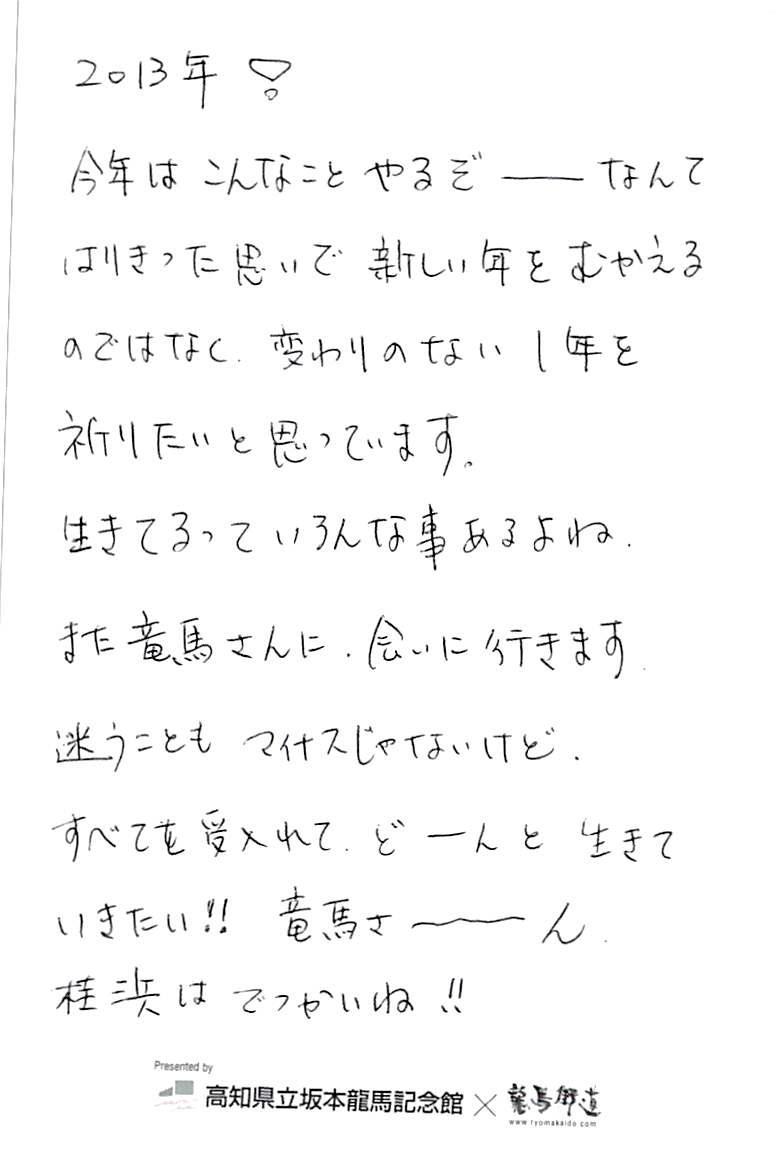 2013年 !
今年は こんなこと やるぞ ── なんて
はりきった思いで 新しい年を むかえる
のではなく、変わりのない 1年を
祈りたいと思っています。
生きてるって いろんな事あるよね.
また竜馬さんに、会いに行きます.
迷うことも マイナスじゃないけど.
すべてを受入れて、ど ーんと 生きて
いきたい!! 竜馬さ〜〜ん.
桂浜は でっかいね !!
Presented by
高知県立坂本龍馬記念館 × 龍馬街道
www.ryomakaido.com